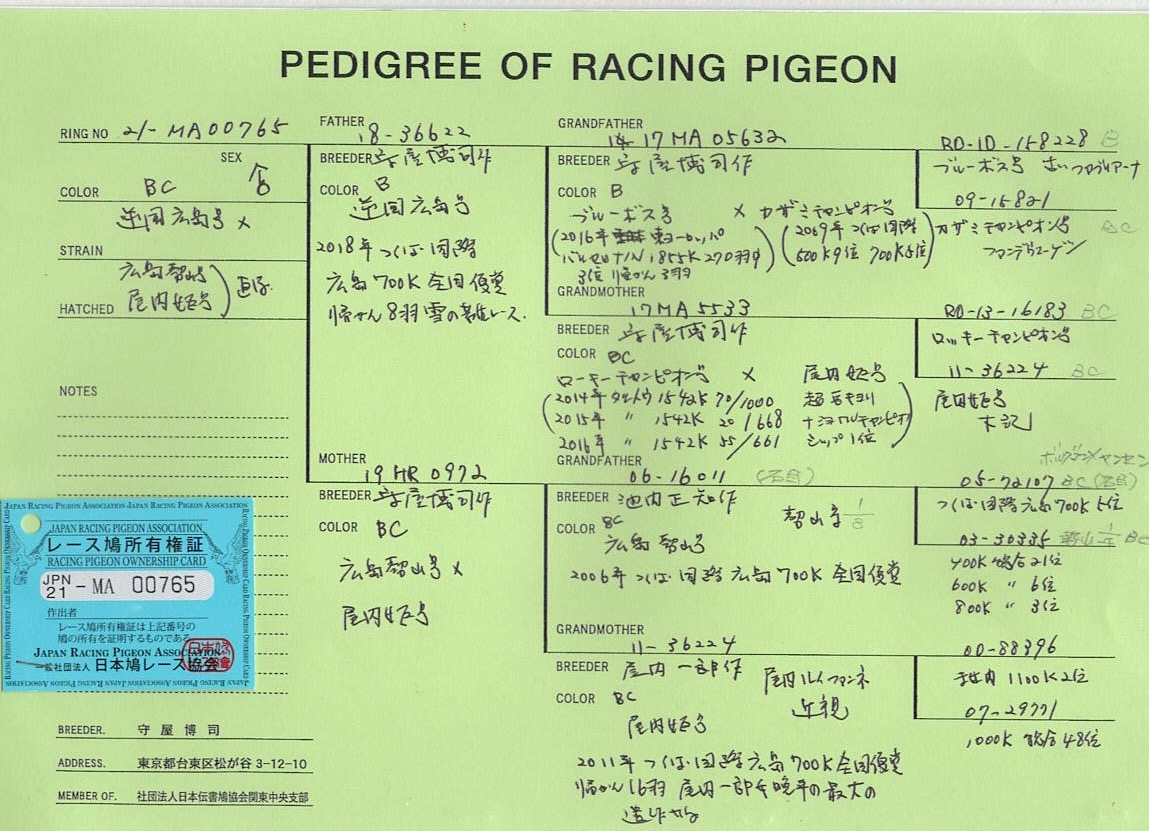 PEDIGREE OF RACING PIGEON
RING NO 21-MA00765
SEX
COLOR BC
逆国広島号 ×
STRAIN
広島智山号
HATCHED 尾内姫号
NOTES
FATHER 18-36622
BREEDER 守屋博司作
COLOR B
逆国広島号
2018年つくば国際
広島700K全国優賞
帰かん8羽雪の
MOTHER 19HR0972
BREEDER 守屋博司作
COLOR BC
広島智山号 ×
尾内姫号
GRANDFATHER 17MA05632
BREEDER 守屋博司作
COLOR B
ブルーボス号 × カザミチャンピオン号
(2016年 東ヨーロッパ
バルセロナIN 1855K270羽中
3位 帰かん3羽)
(2009年つくば国際
500K9位 700K5位)
GRANDMOTHER 17MA5533
BREEDER 守屋博司作
COLOR BC
ローキーチャンピオン号 × 尾内姫号
2014年 1542K 70/1000
2015年 〃 1542K 20/668
2016年 〃 1542K 55/661
ナショナルチャンピオン
シップ1位
GRANDFATHER 06-16011
BREEDER 池内正知作
智山系 1/8
COLOR BC
広島智山号
2006年つくば国際広島700K全国優賞
GRANDMOTHER 11-36224
BREEDER 尾内一郎作
尾内ルイファンネ
近親
COLOR BC
尾内姫号
2011年つくば国際広島700K全国優賞
帰かん16羽 尾内一郎氏 の最大の
RO-10-158228 B
ブルーボス号
09-15821
カザミチャンピオン号 BC
RO-13-16183 BC
ロッキーチャンピオン号
11-36224 BC
尾内姫号
05-72107 BC
つくば国際広島700K5位
03-30335 BC
400K総合21位
600K 〃 6位
800K 〃 3位
00-88396
1100K2位
07-29771
1000K総合48位
JAPAN RACING PIGEON ASSOCIATION
レース鳩所有権証
RACING PIGEON OWNERSHIP CARD
JPN 21 - MA 00765
作出者
レース鳩所有権証は上記番号の
鳩の所有を証明するものである
JAPAN RACING PIGEON ASSOCIATION
一般社団法人 日本鳩レース協会
BREEDER. 守屋博司
ADDRESS. 東京都台東区松が谷3-12-10
MEMBER OF. 社団法人日本伝書鳩協会関東中央支部